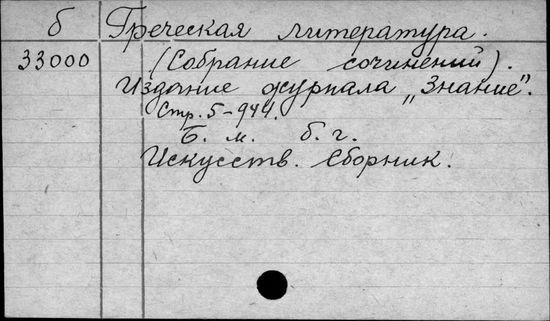 б Греческая литература.
33000 (Собрание сочинений).
Издание журнала „Знание".
Стр. 5-944.
Б. м. б. г.
Искусств. сборник.